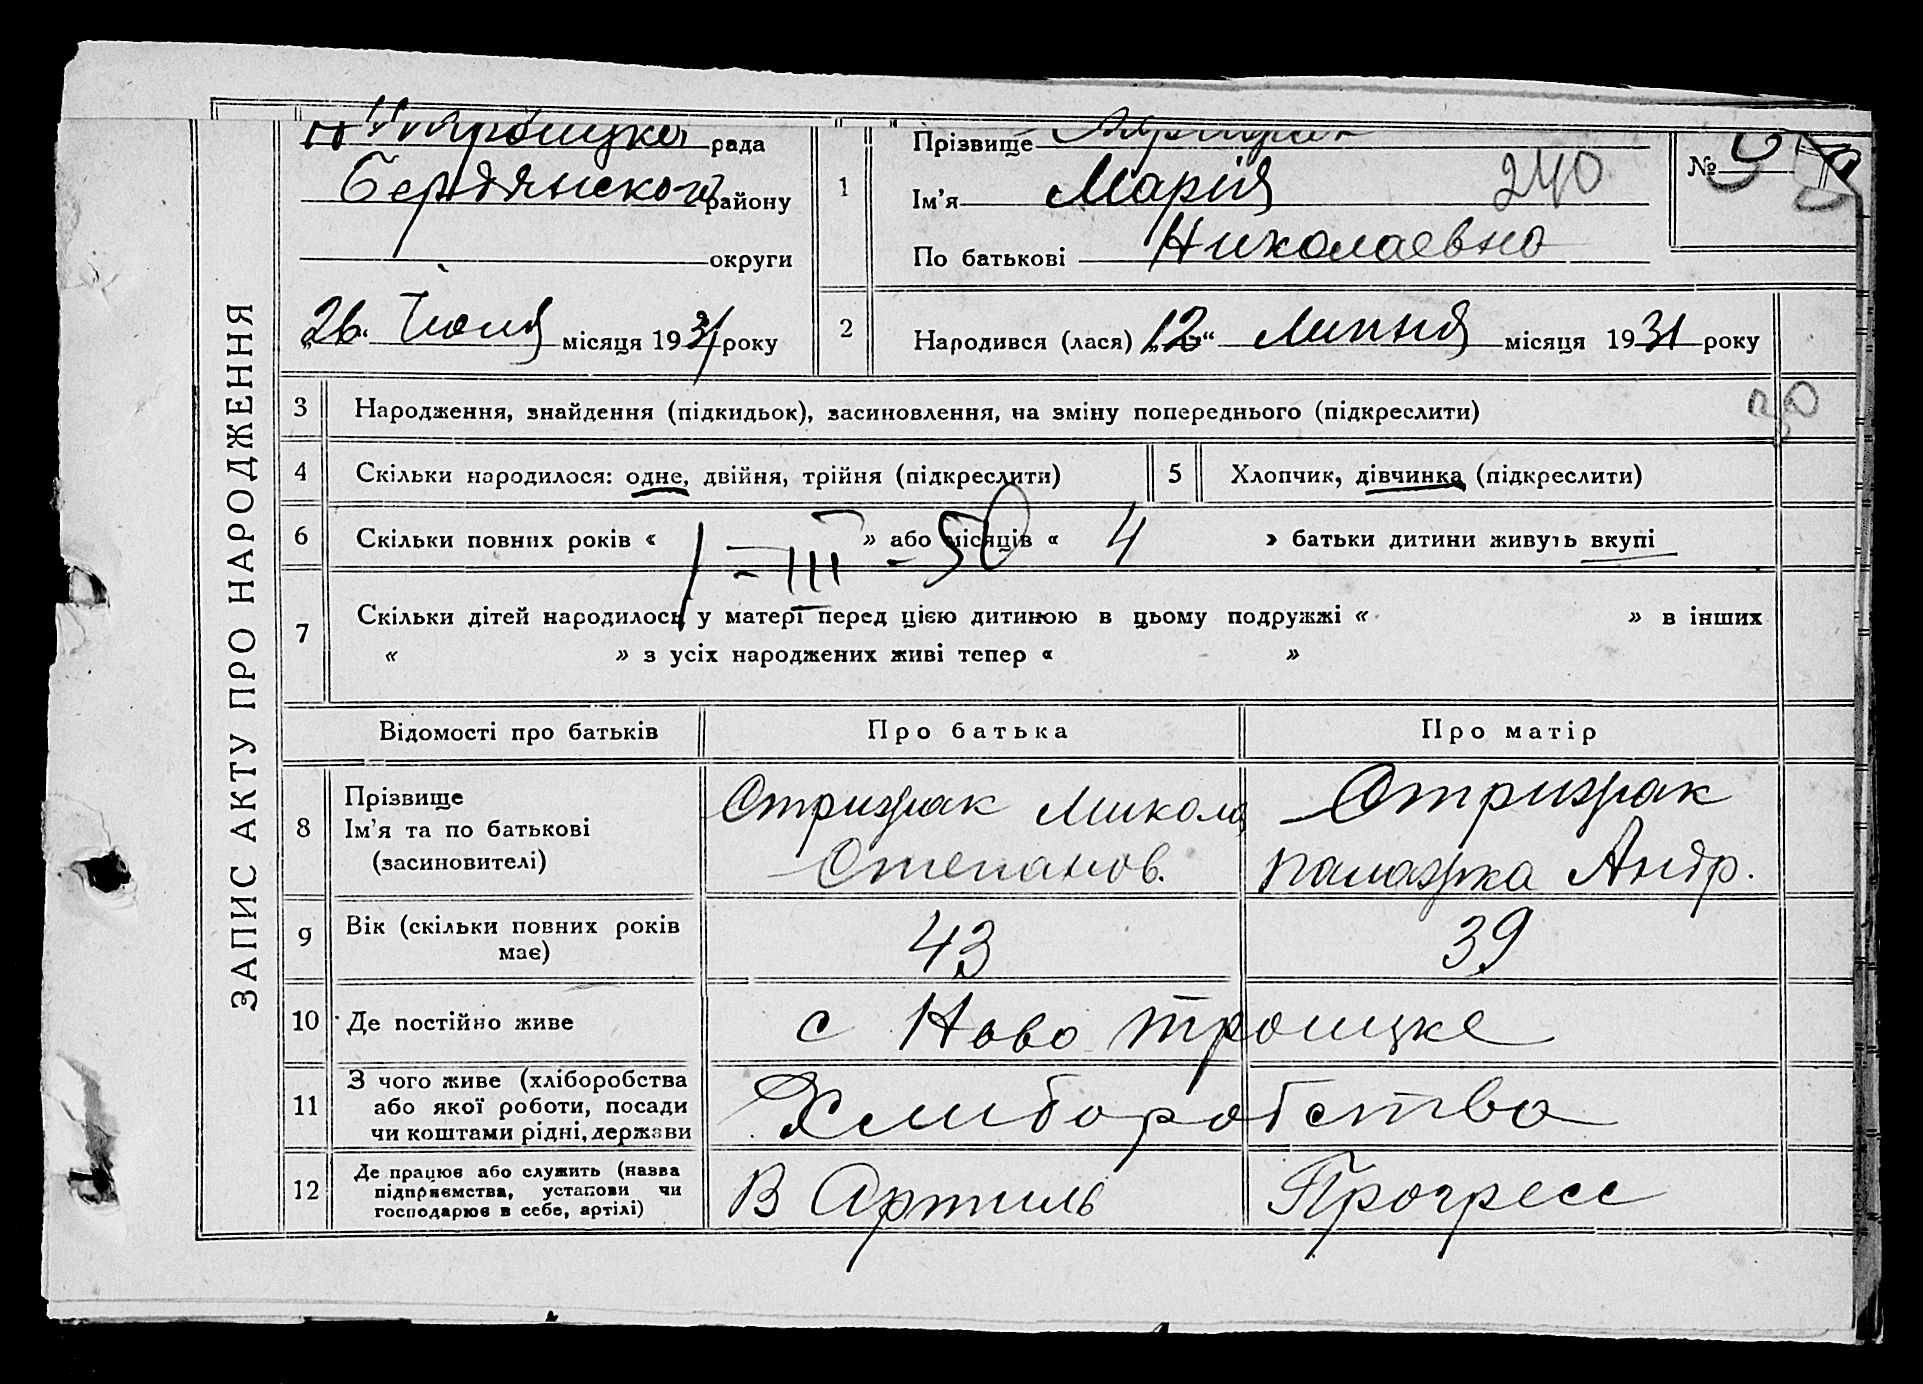 ЗАПИС АКТУ ПРО НАРОДЖЕННЯ
рада
Бердянского району
округи
„26“ Июля місяця 1931 року
1
Прізвище
Ім'я Марія 240
По батькові Николаевна
№
2
Народився (лася) „12“ Липня місяця 1931 року
3 Народження, знайдення (підкидьок), засиновлення, на зміну попереднього (підкреслити)
4 Скільки народилося: одне, двійня, трійня (підкреслити)
5 Хлопчик, дівчинка (підкреслити)
6 Скільки повних років « » або місяців « 4 » батьки дитини живуть вкупі
I - III - 50
7 Скільки дітей народилось у матері перед цією дитиною в цьому подружжі « » в інших
« » з усіх народжених живі тепер « »
Відомості про батьків Про батька Про матір
8 Прізвище
Ім'я та по батькові
(засиновителі)
Стризрак Микола
Степанов.
Стризрак
Палажка Андр.
9 Вік (скільки повних років має) 43 39
10 Де постійно живе с Ново Троицке
11 З чого живе (хліборобства
або якої роботи, посади
чи коштами рідні, держави
Хлиборобство
12 Де працює або служить (назва
підприємства, установи чи
господарює в себе, артілі)
В Артиль Прогресс